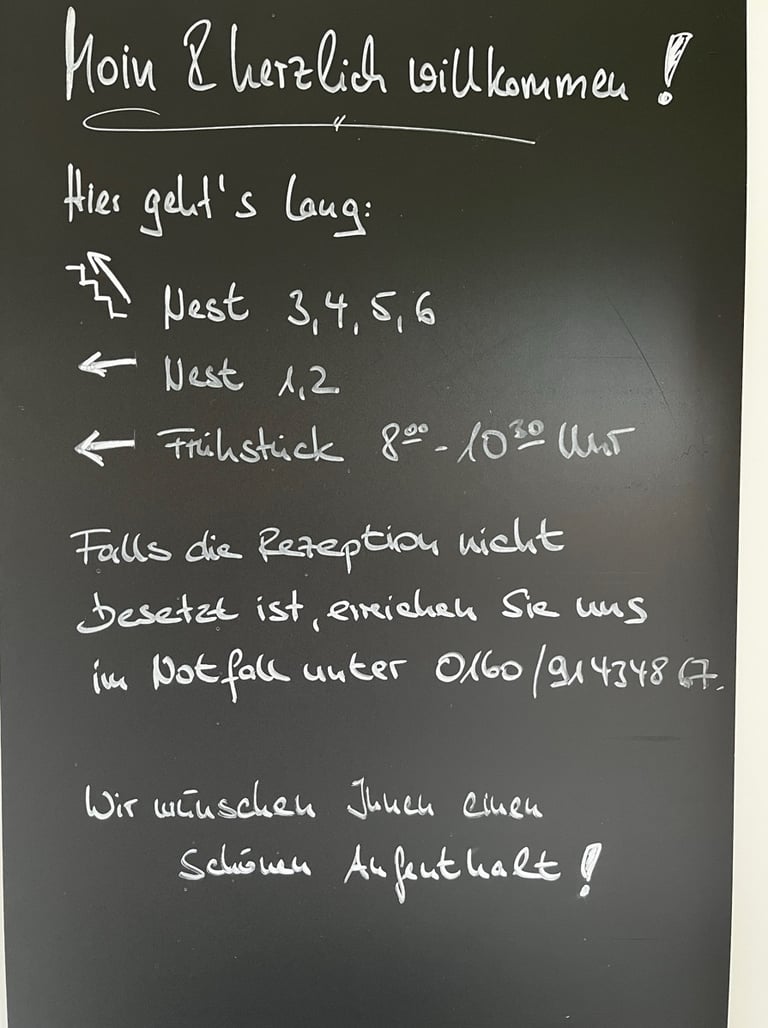 Moin & herzlich willkommen!
Hier geht's lang:
Nest 3, 4, 5, 6
Nest 1, 2
Frühstück 8⁰⁰ - 10³⁰ Uhr
Falls die Rezeption nicht
besetzt ist, erreichen Sie uns
im Notfall unter 0160/91434867.
Wir wünschen Ihnen einen
schönen Aufenthalt!